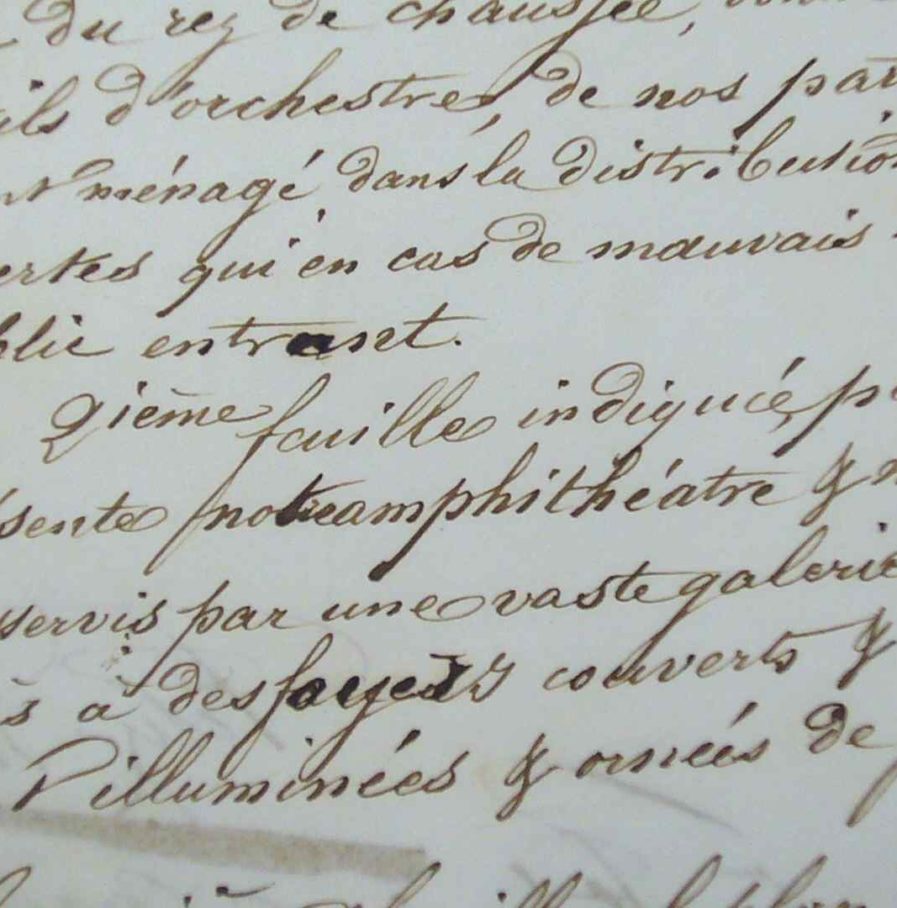 du rez de chaussée,
ils d'orchestre, de nos par
nt ménagé dans la distribution
ertes qui en cas de mauvais
blic entrant.
2ième feuille indiquée p
ésente notre amphithéatre &
servis par une vaste galerie
s à des foyers couverts &
illuminées & ornées de